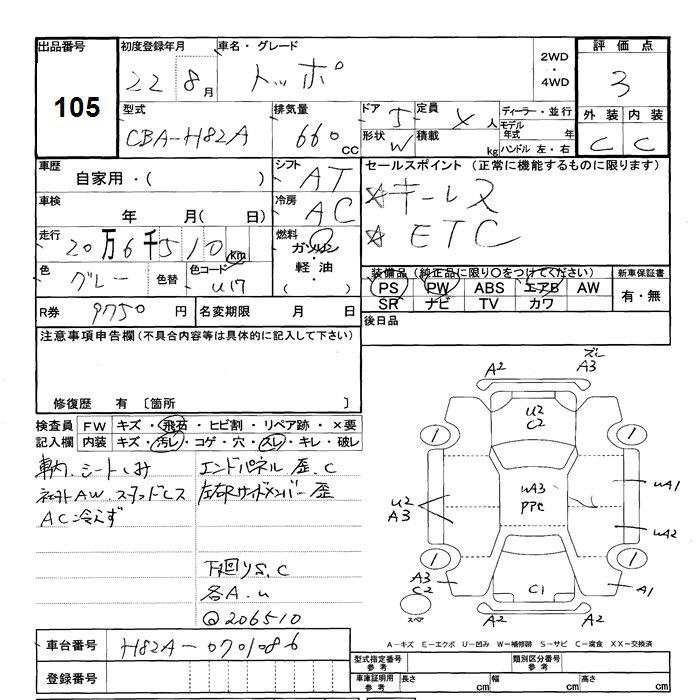 出品番号
105
初度登録年月
22 8月
車名・グレード
トッポ
2WD
・
4WD
評価点
3
型式
CBA-H82A
排気量
660 cc
ドア 5
形状 W
定員 4 人
積載 kg
ディーラー・並行
モデル
年式 年
ハンドル 左・右
外装 内装
C C
車歴
自家用・( )
シフト
AT
車検
年 月( 日)
冷房
AC
走行
20万6千510 km
燃料
ガソリン
・
軽油
・
( )
色
グレー
色替
色コード
U17
R券 9750 円
名変期限 月 日
セールスポイント (正常に機能するものに限ります)
☆キーレス
☆ETC
装備品 (純正品に限り○をつけてください)
PS PW ABS エアB AW
SR ナビ TV カワ
新車保証書
有・無
後日品
注意事項申告欄(不具合内容等は具体的に記入して下さい)
修復歴 有 〔箇所 〕
検査員 FW キズ・飛石・ヒビ割・リペア跡・×要
記入欄 内装 キズ・汚レ・コゲ・穴・スレ・キレ・破レ
シートしみ
AW.スタッドレス
AC冷えず
エンドパネル歪.C
左右Rサイドメンバー歪
下廻りS.C
各A.U
@206510
A2
ズレ
A3
U2
C2
1
1
UA3
PPC
UA1
U2
A3
UA2
1
1
A3
C2
C1
A1
スペア
A2
A2
A-キズ E-エクボ U-凹み W-補修跡 S-サビ C-腐食 XX-交換済
車台番号 H82A-0701086
登録番号
型式指定番号
参考
類別区分番号
参考
車庫証明用
参考
長さ cm
幅 cm
高さ cm